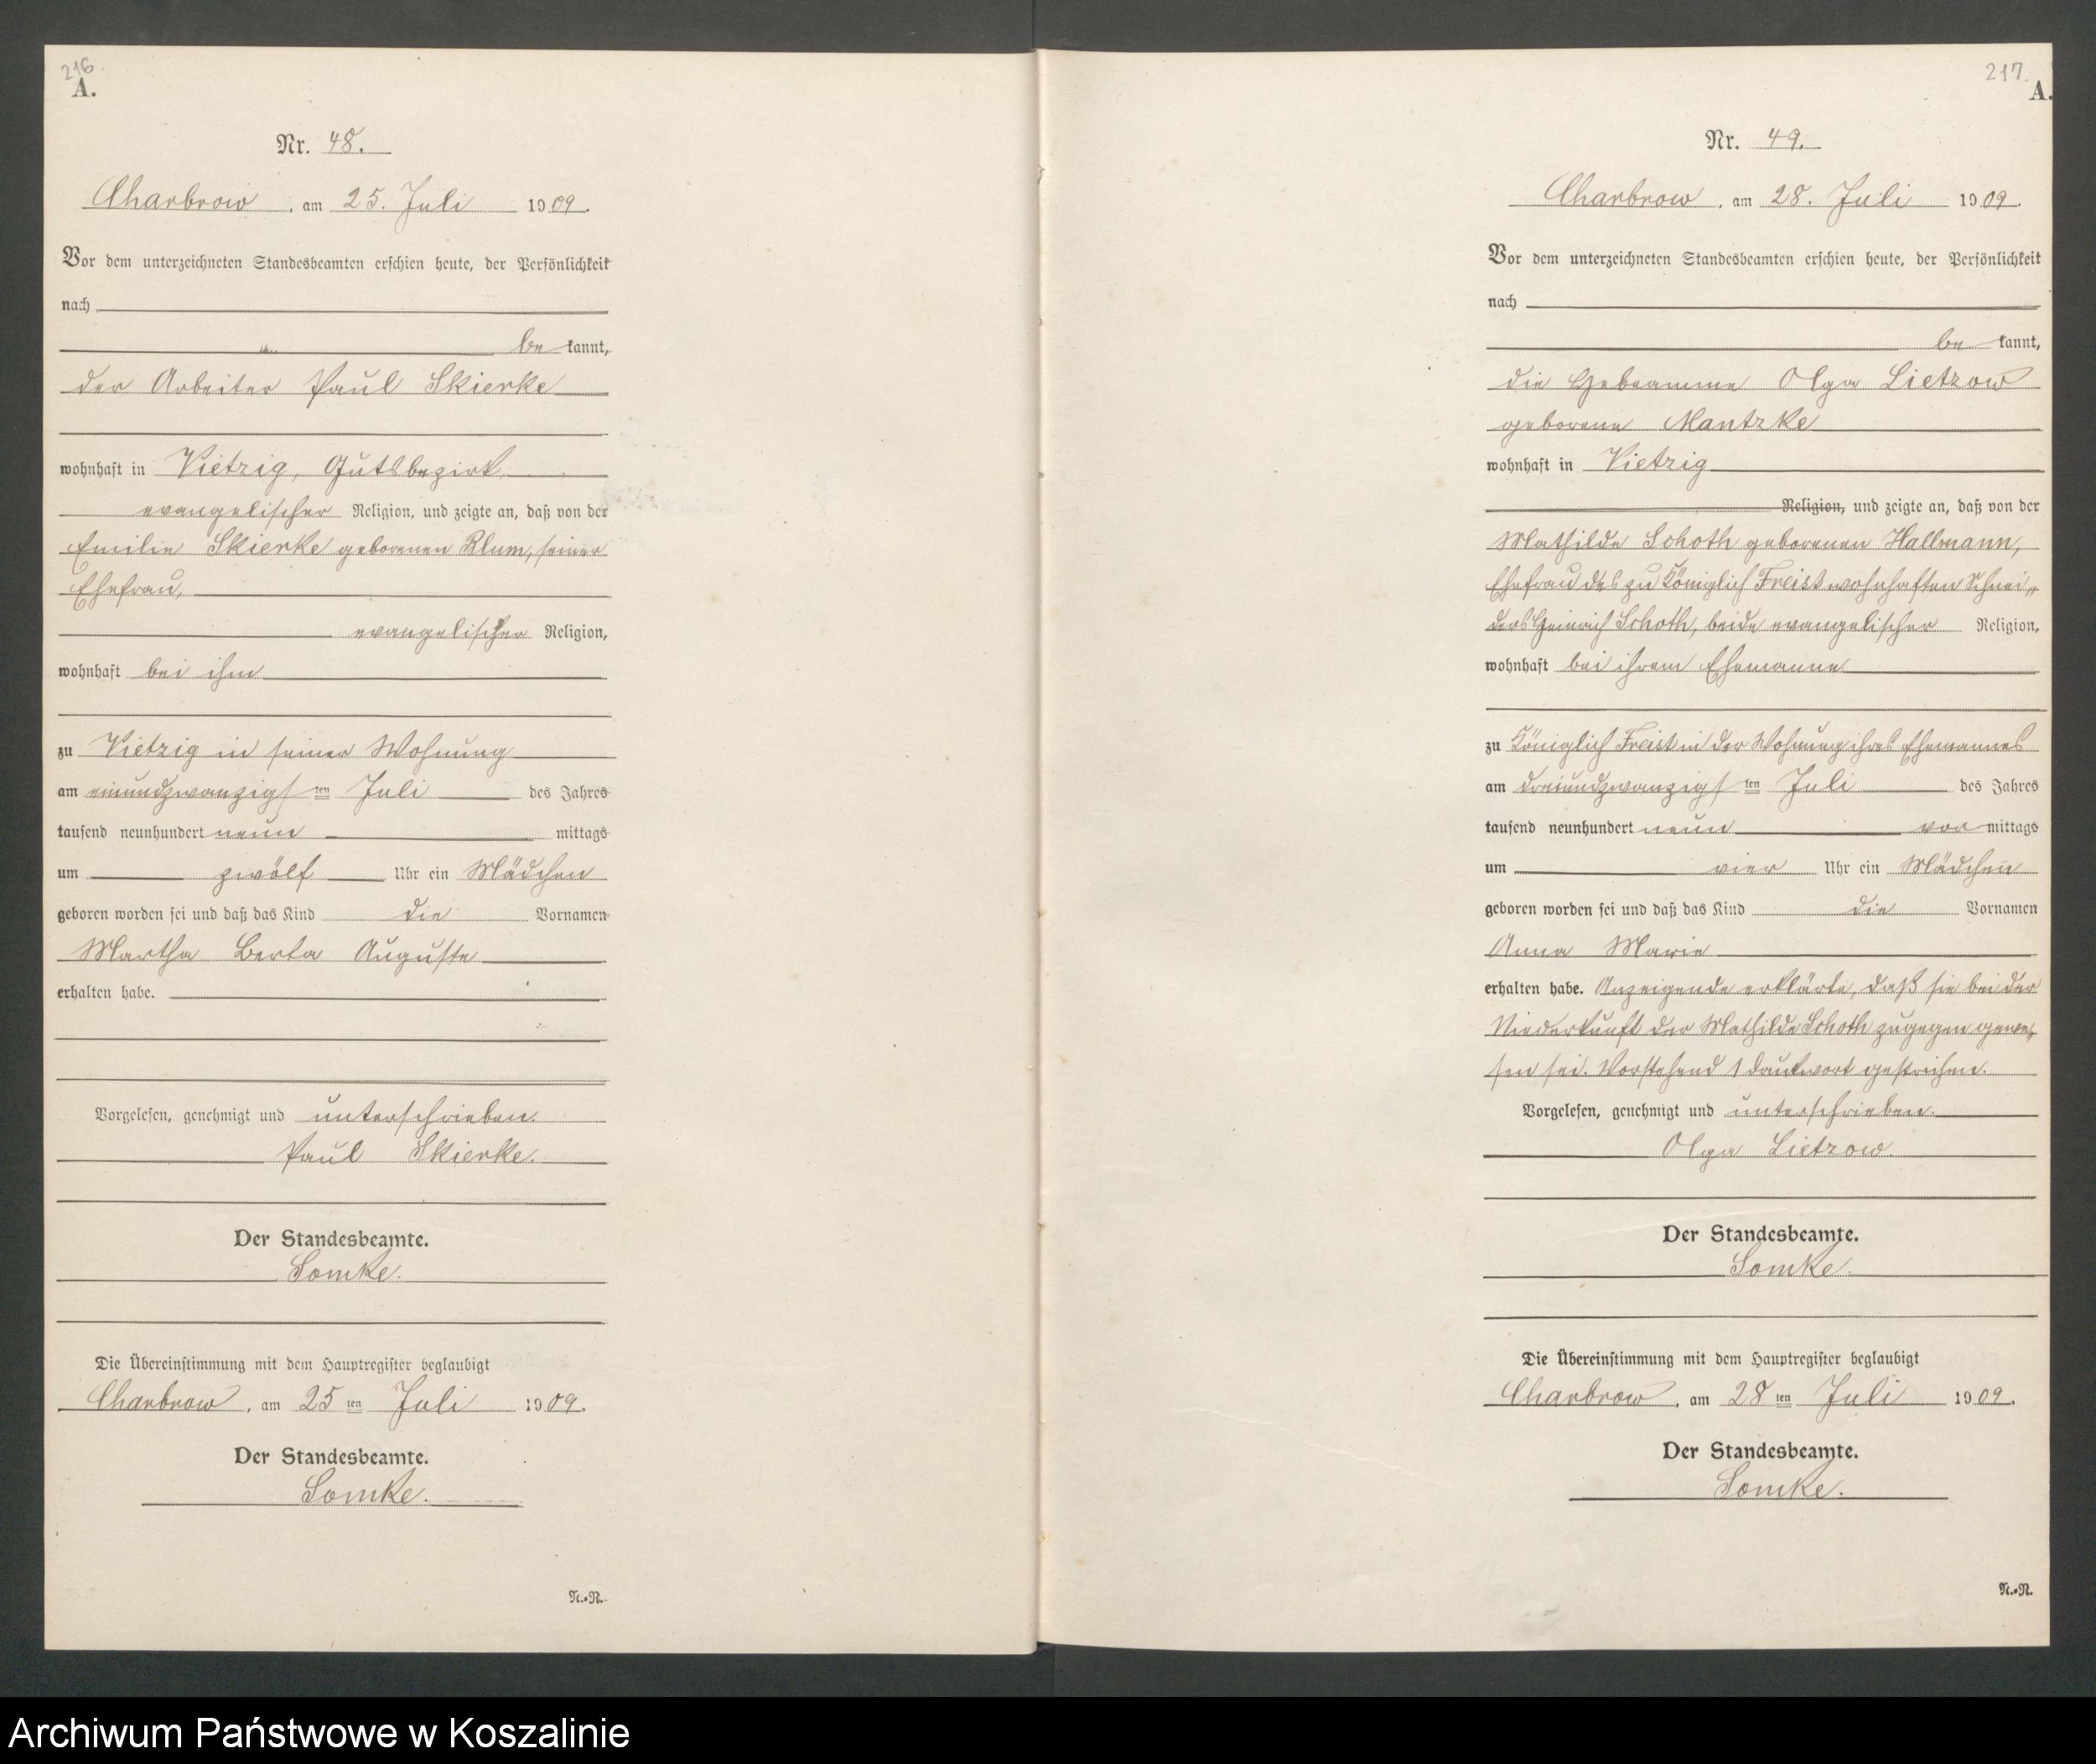 216.
A.
Nr. 48.
Charbrow, am 25. Juli 1909.
Vor dem unterzeichneten Standesbeamten erschien heute, der Persönlichkeit
nach
be kannt,
der Arbeiter Paul Skierke
wohnhaft in Vietzig, Gutsbezirk,
evangelischer Religion, und zeigte an, daß von der
Emilie Skierke geborenen Blum, seiner
Ehefrau,
evangelischer Religion,
wohnhaft bei ihm
zu Vietzig in seiner Wohnung
am einundzwanzigsten Juli des Jahres
tausend neunhundert neun mittags
um zwölf Uhr ein Mädchen
geboren worden sei und daß das Kind die Vornamen
Martha Berta Auguste
erhalten habe.
Vorgelesen, genehmigt und unterschrieben.
Paul Skierke.
Der Standesbeamte.
Somke.
Die Übereinstimmung mit dem Hauptregister beglaubigt
Charbrow, am 25ten Juli 1909.
Der Standesbeamte.
Somke.
N.-N.
217.
A.
Nr. 49.
Charbrow, am 28. Juli 1909.
Vor dem unterzeichneten Standesbeamten erschien heute, der Persönlichkeit
nach
be kannt,
die Hebeamme Olga Lietzow
geborene Mantzke
wohnhaft in Vietzig
Religion, und zeigte an, daß von der
Mathilde Schoth geborenen Hallmann,
Ehefrau des zu Königlich Freist wohnhaften Schnei„
ders Heinrich Schoth, beide evangelischer Religion,
wohnhaft bei ihrem Ehemanne
zu Königlich Freist in der Wohnung ihres Ehemannes
am dreiundzwanzigsten Juli des Jahres
tausend neunhundert neun vor mittags
um vier Uhr ein Mädchen
geboren worden sei und daß das Kind die Vornamen
Anna Marie
erhalten habe. Anzeigende erklärte, daß sie bei der
Niederkunft der Mathilde Schoth zugegen gewe„
sen sei. Vorstehend 1 Druckwort gestrichen.
Vorgelesen, genehmigt und unterschrieben.
Olga Lietzow.
Der Standesbeamte.
Somke.
Die Übereinstimmung mit dem Hauptregister beglaubigt
Charbrow, am 28ten Juli 1909.
Der Standesbeamte.
Somke.
N.-N.
Archiwum Państwowe w Koszalinie